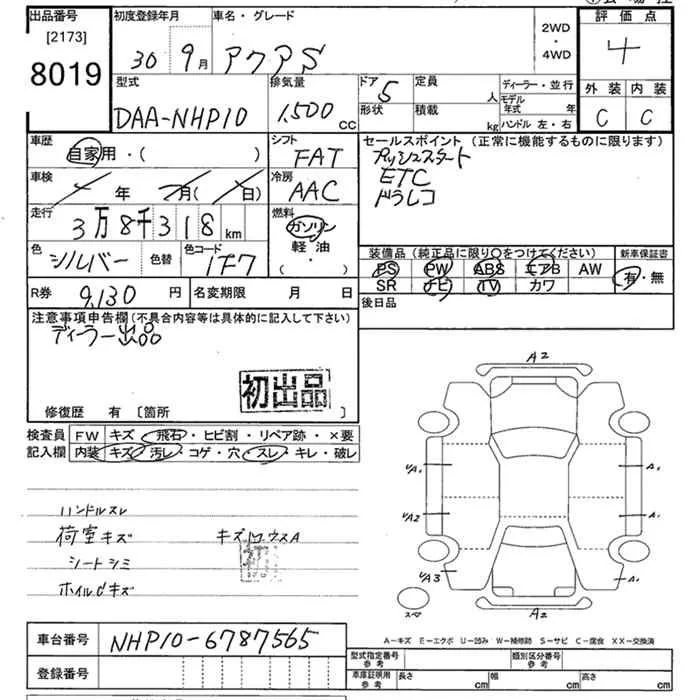 出品番号 初度登録年月 車名・グレード 2WD・4WD 評価点
[2173]
8019 30 9月 アクアS 4
型式 排気量 ドア 5 定員 人 ディーラー・並行 外装 内装
DAA-NHP10 1,500 cc 形状 積載 kg モデル年式 年 C C
ハンドル 左・右
車歴 自家用・( ) シフト FAT セールスポイント (正常に機能するものに限ります)
プッシュスタート
ETC
ドラレコ
車検 年 月( 日) 冷房 AAC
走行 3万8千318km 燃料 ガソリン
軽・油
・( )
色 シルバー 色替 色コード 1F7
装備品 (純正品に限り○をつけてください) 新車保証書
PS PW ABS エアB AW 有・無
SR ナビ TV カワ
R券 9,130円 名変期限 月 日 後日品
注意事項申告欄(不具合内容等は具体的に記入して下さい)
ディーラー出品
初出品
修復歴 有 [箇所 ]
検査員 FW キズ・飛石・ヒビ割・リペア跡・×要
記入欄 内装 キズ・汚レ・コゲ・穴・スレ・キレ・破レ
ハンドルスレ
荷室キズ
シートシミ
ホイルCキズ
初
A2
A1
A1
A2
A1
A3
A1
スペ
A2
A-キズ E-エクボ U-凹み W-補修跡 S-サビ C-腐食 XX-交換済
車台番号 NHP10-6787565
型式指定番号 参考 類別区分番号 参考
登録番号
車庫証明用 参考 長さ cm 幅 cm 高さ cm